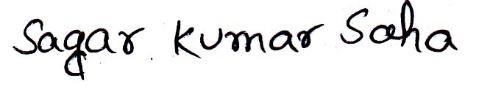 Sagar Kumar Saha